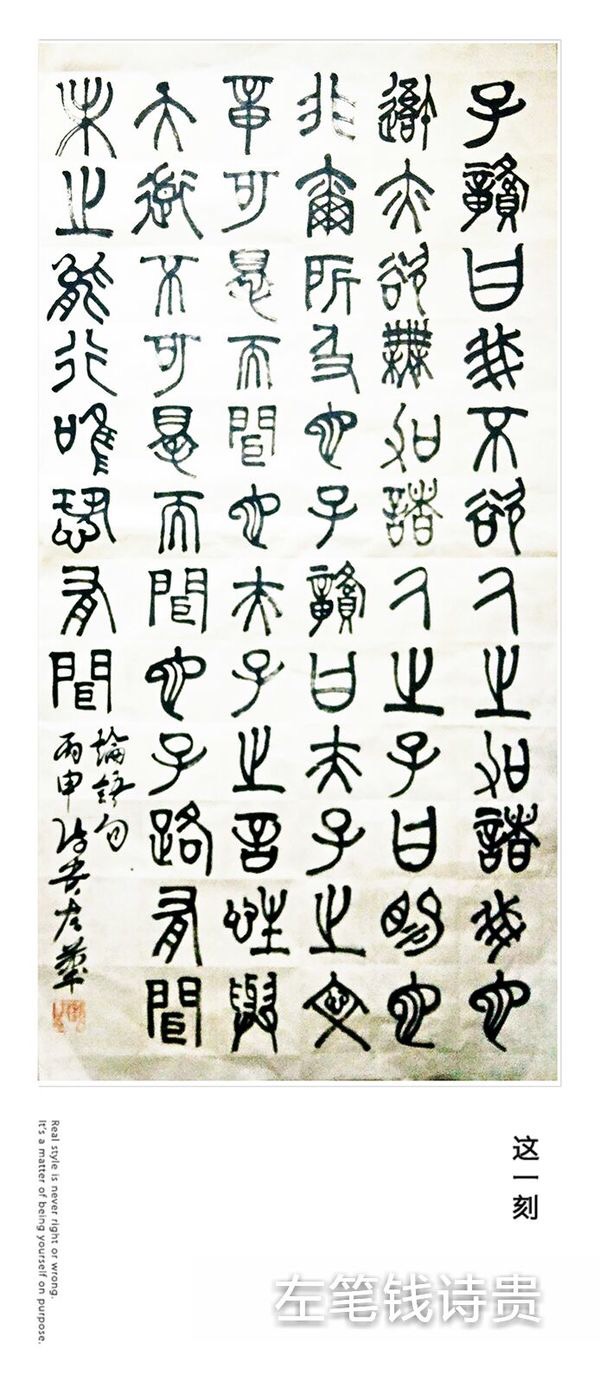 子贛曰我不欲人之加諸我也
吾亦欲無加諸人之子曰賜也
非爾所及也子贛曰夫子之文
章可得而聞也夫子之言性與
天道不可得而聞也子路有聞
未之能行唯恐有聞
論語句
丙申詩貴左筆
这一刻
Real style is never right or wrong.
It's a matter of being yourself on purpose.
左笔钱诗贵